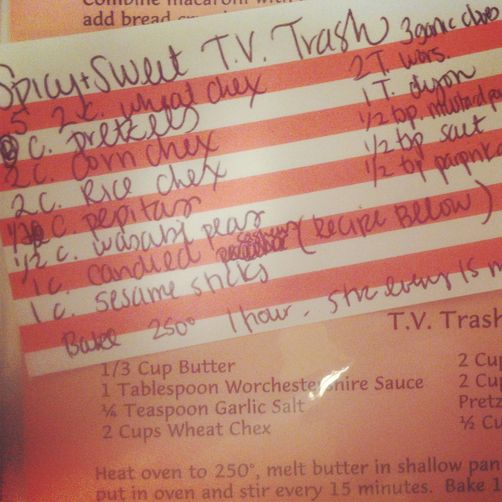 Combine macaroni with
add bread
Spicy + Sweet T.V. Trash
3 garlic cloves
5 2 c. wheat chex
2 T. wors.
2 c. pretzels
1 T. dijon
2 c. corn chex
1/2 tsp mustard
2 c. Rice chex
1/2 tsp salt
1/2 c. pepitas
1/2 tsp paprika
1/2 c. wasabi peas
1 c. candied (Recipe Below)
1 c. sesame sticks
Bake 250° 1 hour. Stir every 15 m
T.V. Trash
1/3 Cup Butter
1 Tablespoon Worchestershire Sauce
¼ Teaspoon Garlic Salt
2 Cups Wheat Chex
2 Cup
2 Cup
Pretz
½ Cu
Heat oven to 250°, melt butter in shallow pan
put in oven and stir every 15 minutes. Bake 1